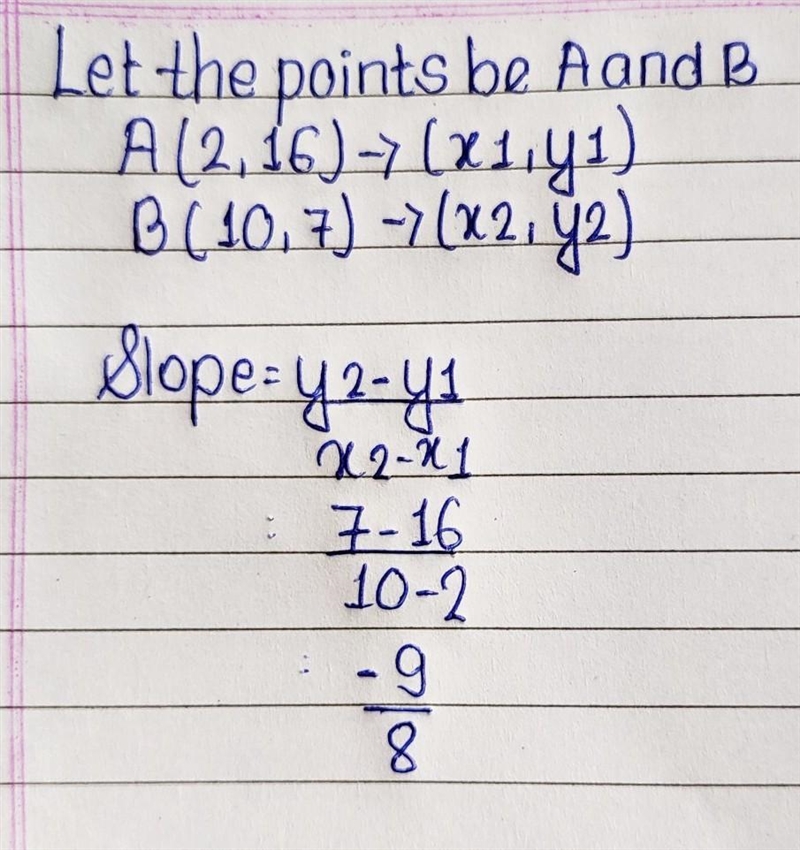 Let the points be A and B
A(2,16)->(x1,y1)
B(10,7)->(x2,y2)
Slope=y2-y1
x2-x1
: 7-16
10-2
: -9
8